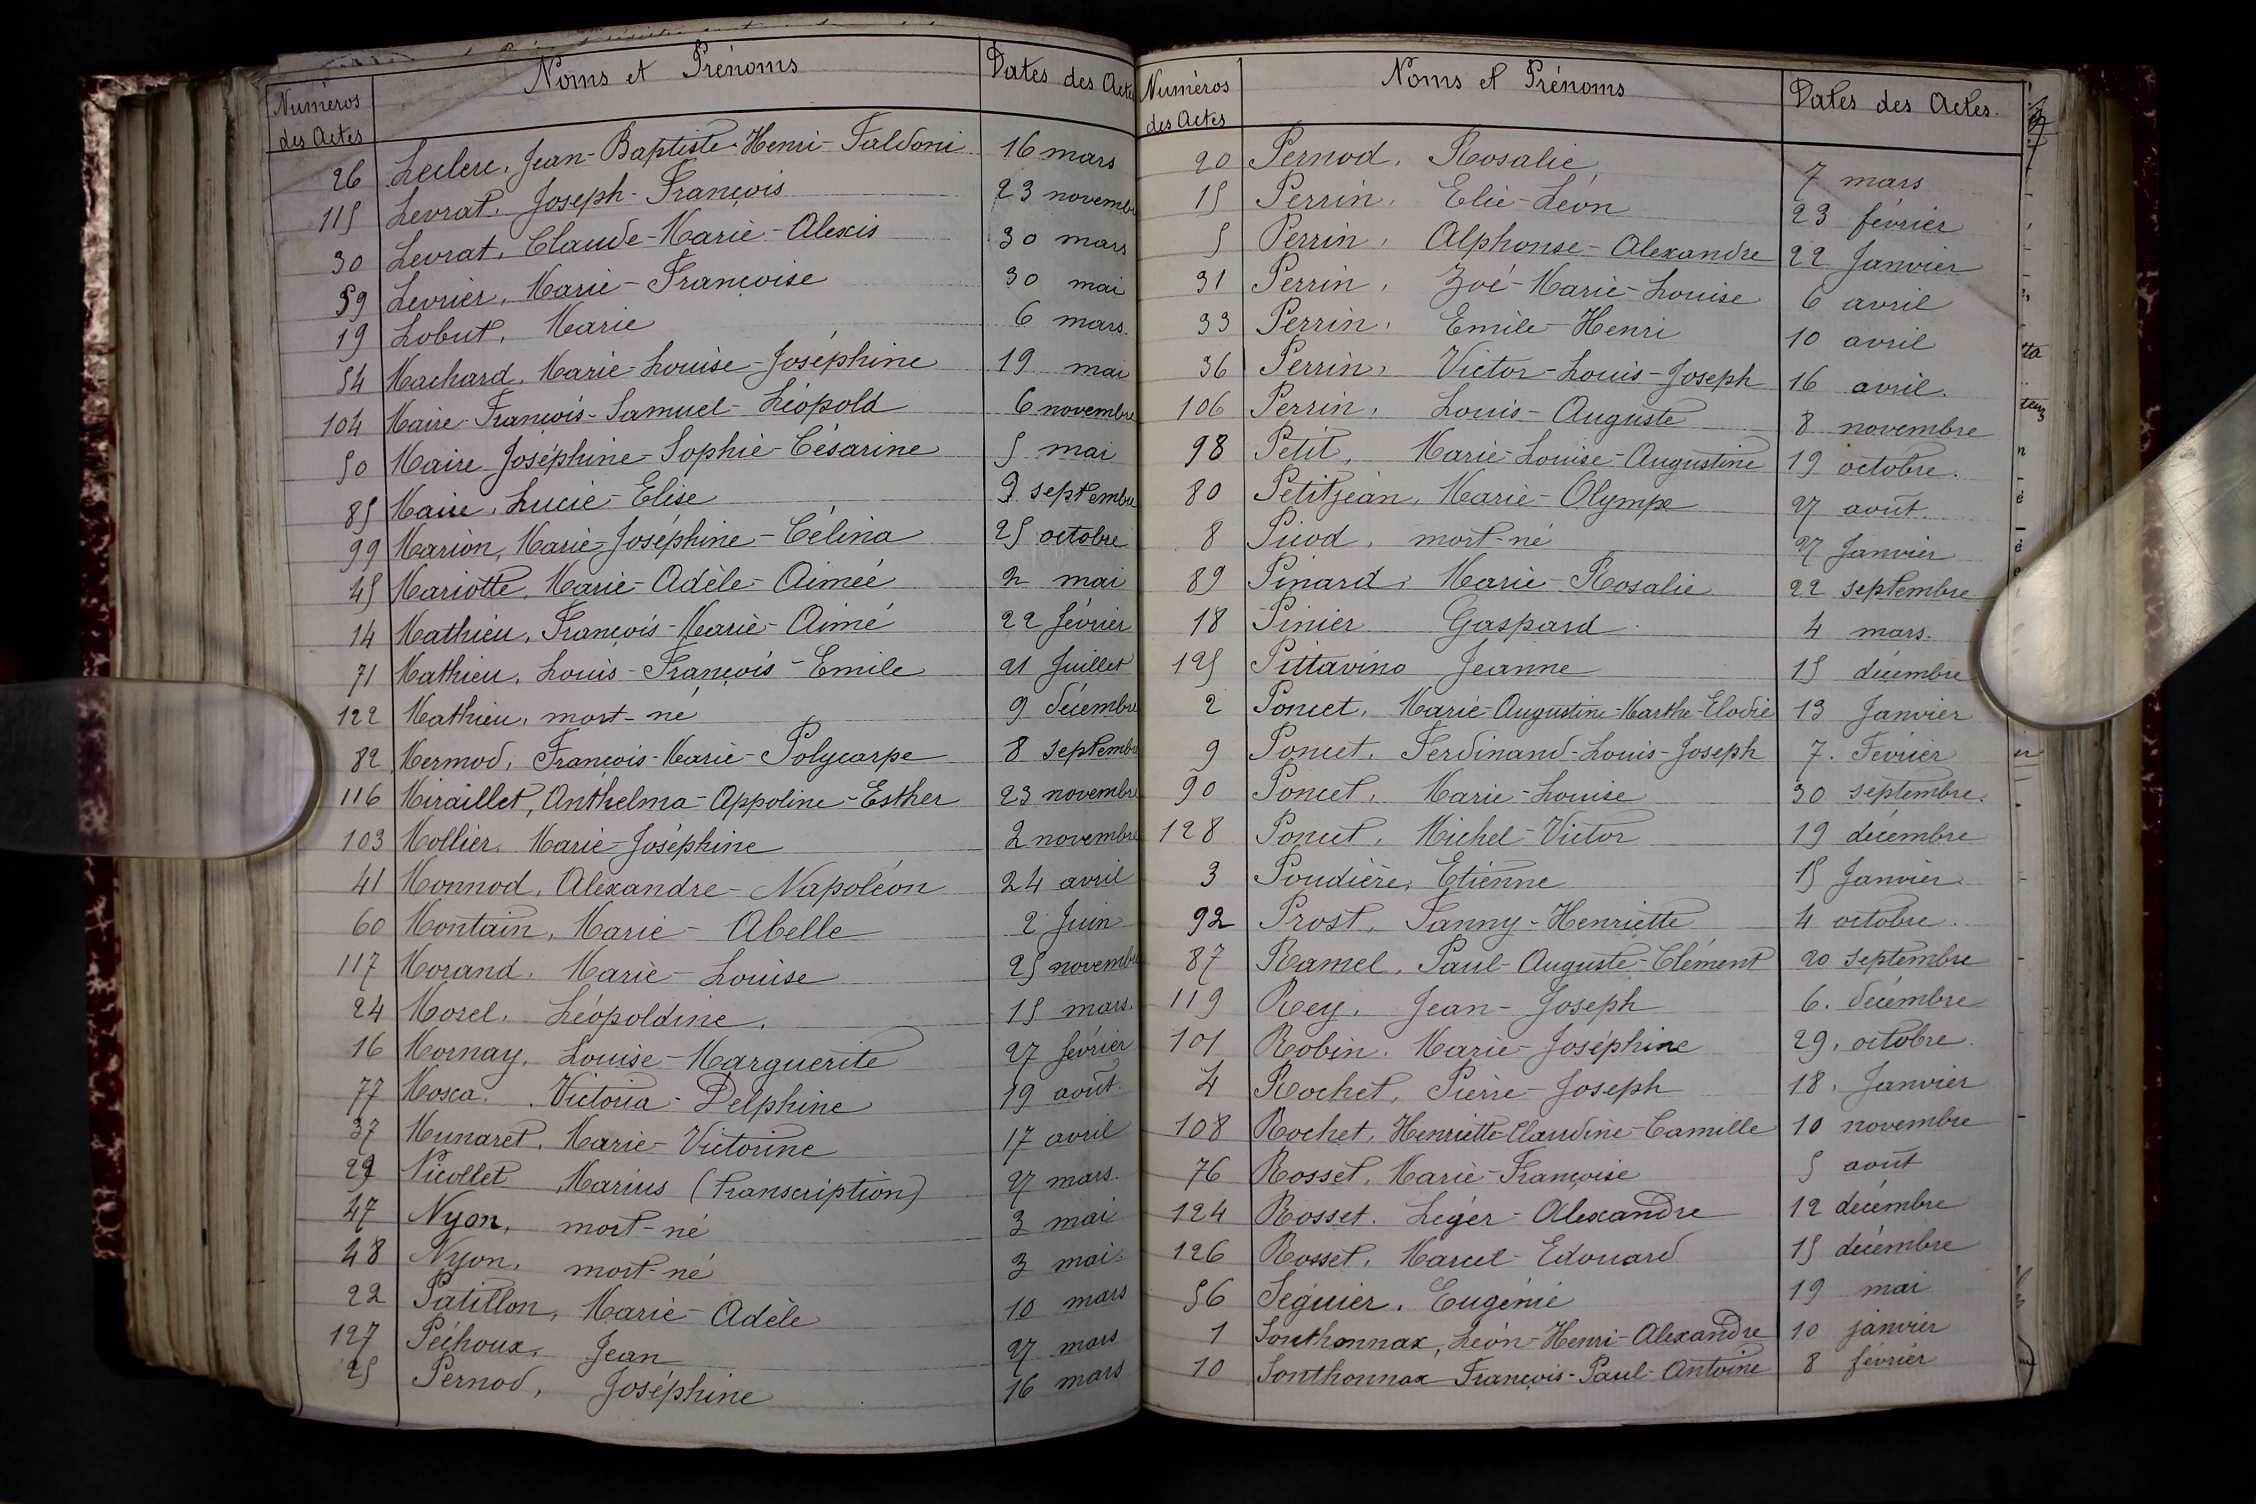 Numéros des Actes Noms et Prénoms Dates des Actes
26 Leclerc, Jean-Baptiste-Henri-Faldoni 16 mars
115 Levrat, Joseph-François 23 novembre
30 Levrat, Claude-Marie-Alexis 30 mars
59 Levrier, Marie-Françoise 30 mai
19 Lobut, Marie 6 mars.
54 Machard, Marie-Louise-Joséphine 19 mai
104 Maire-François-Samuel-Léopold 6 novembre
50 Maire Joséphine-Sophie-Césarine 5 mai
85 Maire, Lucie-Elise 9 septembre
99 Marion, Marie-Joséphine-Célina 25 octobre
45 Mariotte, Marie-Adèle-Aimée 2 mai
14 Mathieu, François-Marie-Aimé 22 février
71 Mathieu, Louis-François-Emile 21 Juillet
122 Mathieu, mort-né 9 décembre
82 Mermod, François-Marie-Polycarpe 8 septembre
116 Miraillet, Anthelma-Appoline-Esther 23 novembre
103 Mollier, Marie-Joséphine 2 novembre
41 Monnod, Alexandre-Napoléon 24 avril
60 Montain, Marie-Abelle 2 Juin
117 Morand, Marie-Louise 25 novembre
24 Morel, Léopoldine, 15 mars.
16 Mornay, Louise-Marguerite 27 février
77 Mosca, Victoria-Delphine 19 août.
37 Munaret, Marie-Victorine 17 avril
29 Nicollet Marius (transcription) 27 mars.
47 Nyon, mort-né 3 mai
48 Nyon, mort-né 3 mai.
22 Patillon, Marie-Adèle 10 mars
127 Péchoux, Jean 27 mars
25 Pernod, Joséphine 16 mars
Numéros des Actes Noms et Prénoms Dates des Actes.
20 Pernod, Rosalie, 7 mars
15 Perrin, Elie-Léon 23 février
5 Perrin, Alphonse-Alexandre 22 Janvier
31 Perrin, Zoé-Marie-Louise 6 avril
33 Perrin, Emile-Henri 10 avril
36 Perrin, Victor-Louis-Joseph 16 avril.
106 Perrin, Louis-Auguste 8 novembre
98 Petit, Marie-Louise-Augustine 19 octobre.
80 Petitjean, Marie-Olympe 27 août.
8 Picod, mort-né 27 Janvier
89 Pinard, Marie-Rosalie 22 septembre
18 Pinier Gaspard 4 mars.
125 Pittavino Jeanne 15 décembre
2 Poncet, Marie-Augustine-Marthe-Elodie 13 Janvier
9 Poncet, Ferdinand-Louis-Joseph 7. Février
90 Poncet, Marie-Louise 30 septembre.
128 Poncet, Michel-Victor 19 décembre
3 Poudière, Etienne 15 Janvier
92 Prost, Fanny-Henriette 4 octobre.
87 Ramel, Paul-Auguste-Clément 20 septembre
119 Rey, Jean-Joseph 6. décembre
101 Robin, Marie-Joséphine 29. octobre.
4 Rochet, Pierre-Joseph 18. Janvier
108 Rochet, Henriette-Claudine-Camille 10 novembre
76 Rosset, Marie-Françoise 5 août
124 Rosset. Léger-Alexandre 12 décembre
126 Rosset, Marcel-Edouard 15 décembre
56 Séguier, Eugénie 19 mai
1 Sonthonnax, Léon-Henri-Alexandre 10 janvier
10 Sonthonnax François-Paul-Antoine 8 février